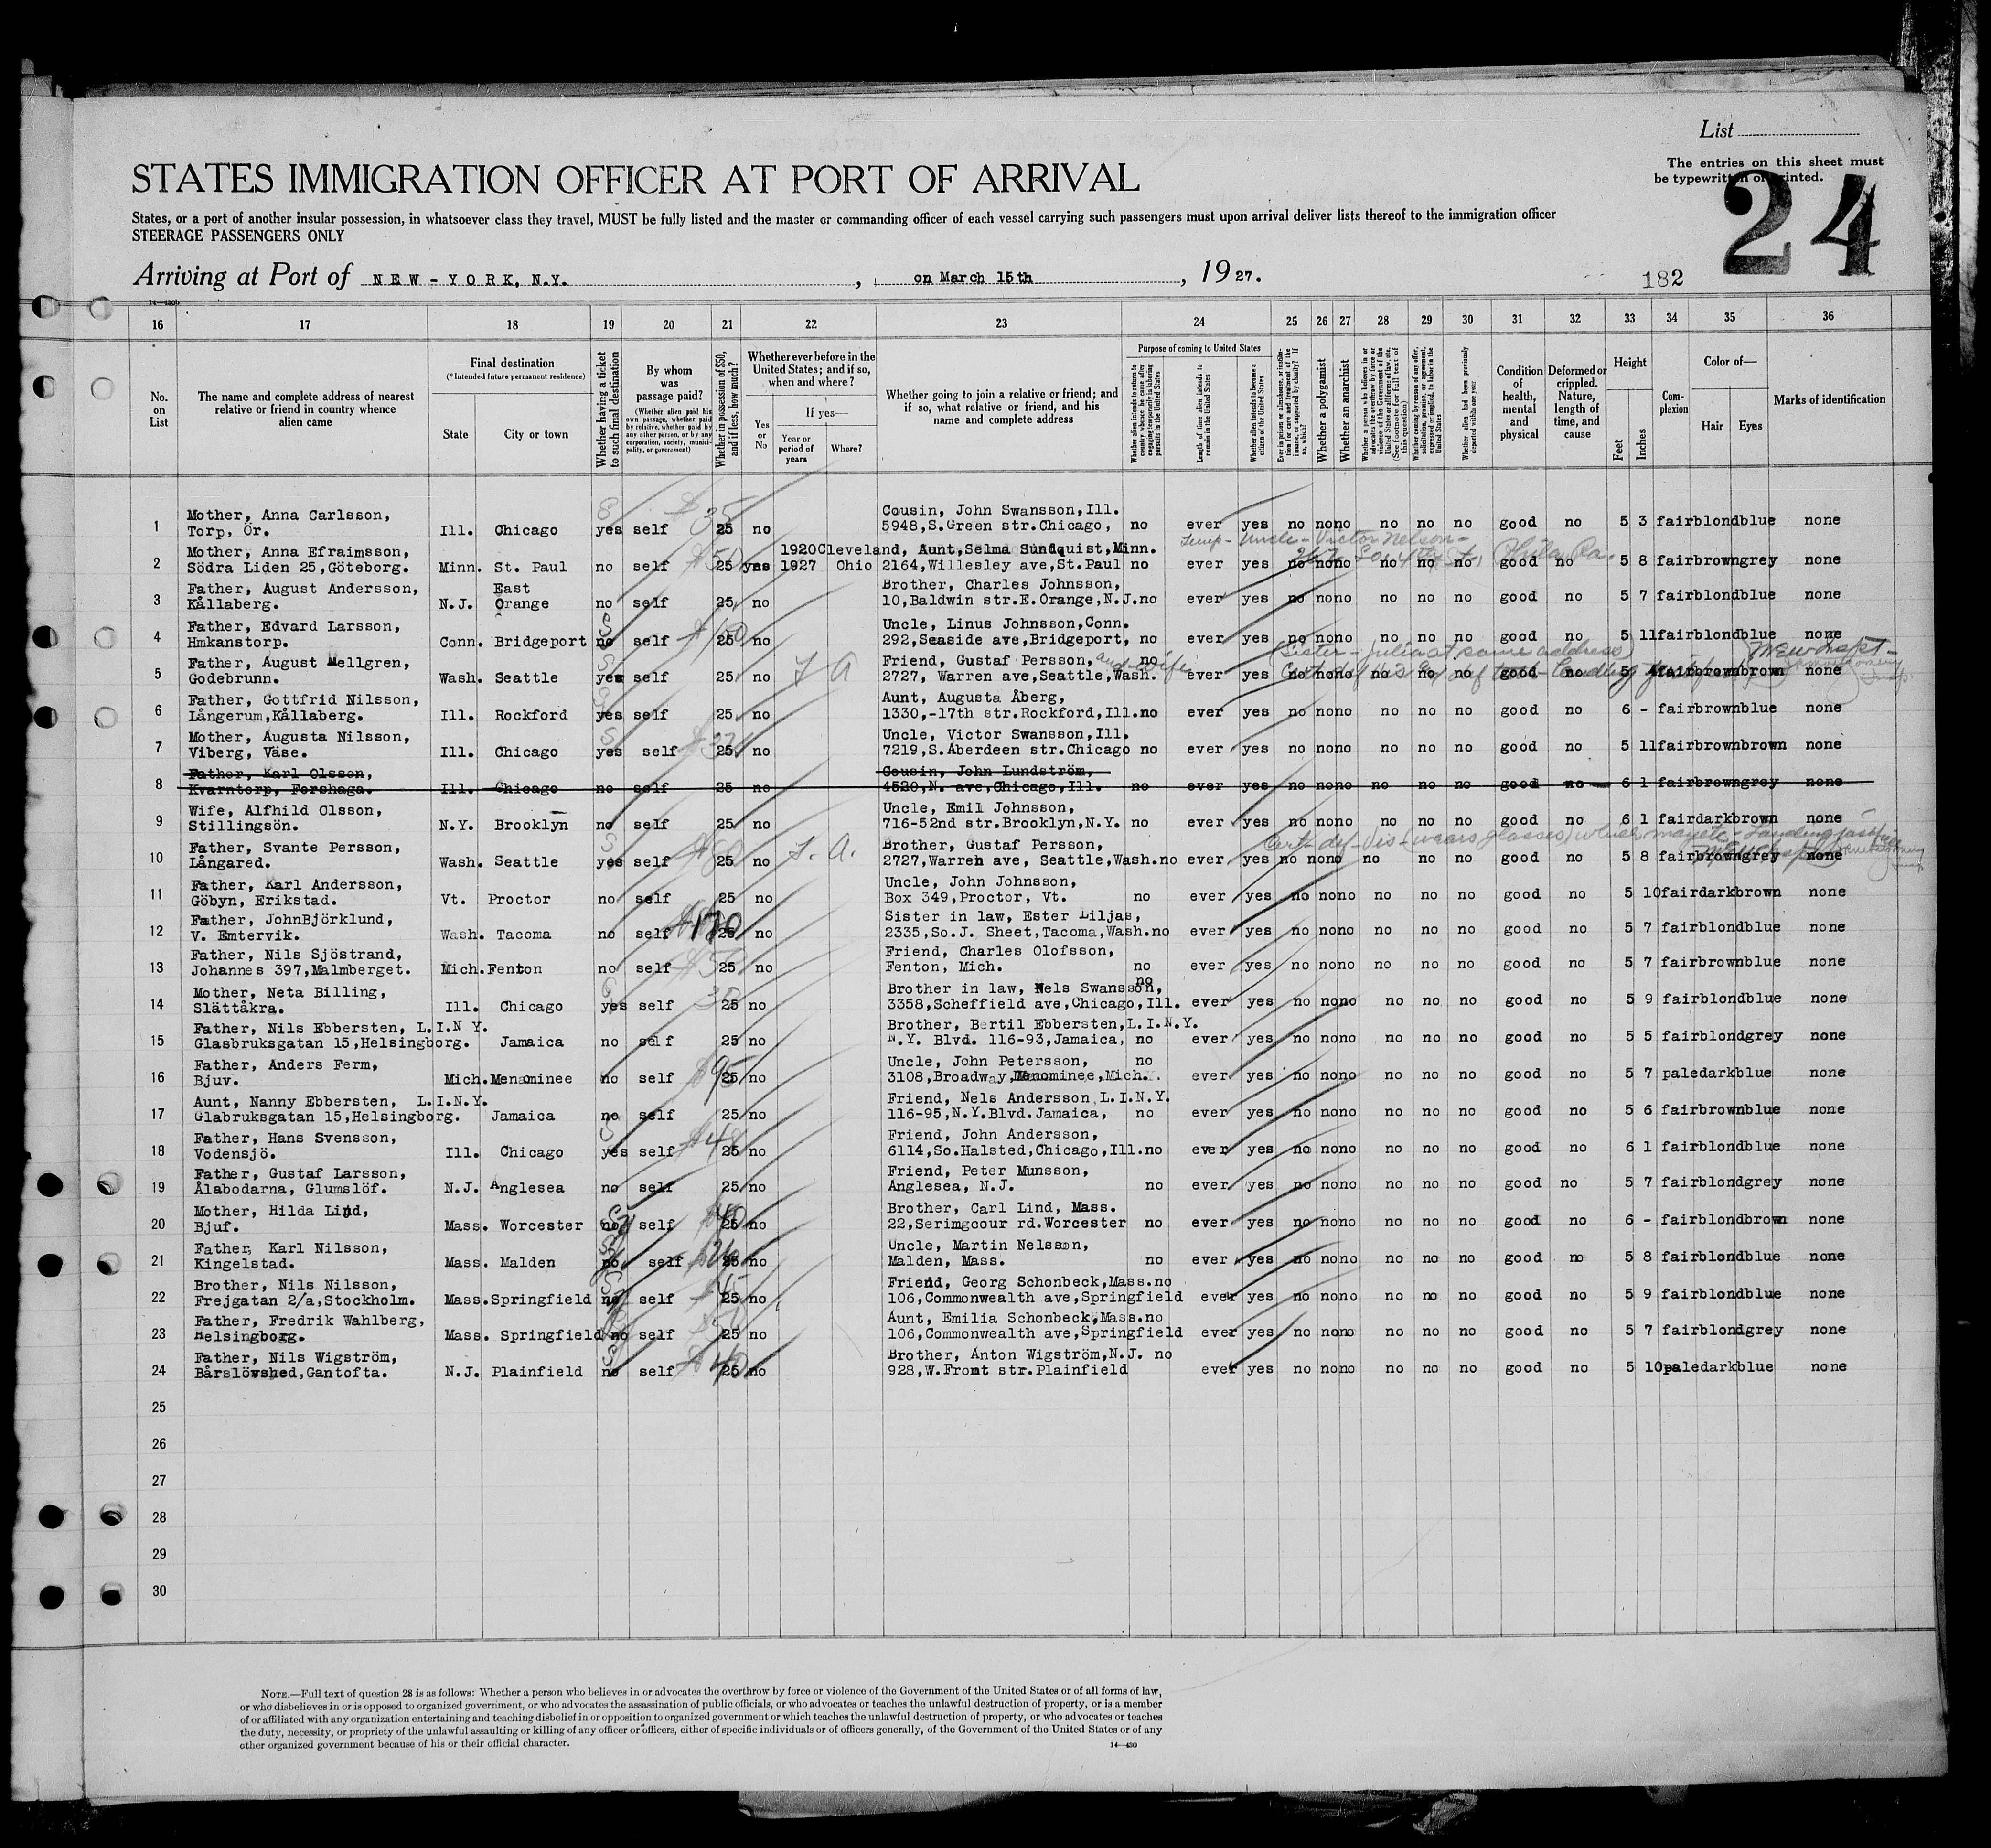 List
The entries on this sheet must
be typewritten or printed.
24
STATES IMMIGRATION OFFICER AT PORT OF ARRIVAL
States, or a port of another insular possession, in whatsoever class they travel, MUST be fully listed and the master or commanding officer of each vessel carrying such passengers must upon arrival deliver lists thereof to the immigration officer
STEERAGE PASSENGERS ONLY
Arriving at Port of NEW-YORK, N.Y. , on March 15th , 1927.
182
16 17 18 19 20 21 22 23 24 25 26 27 28 29 30 31 32 33 34 35 36
No. on List
The name and complete address of nearest relative or friend in country whence alien came
Final destination
(* Intended future permanent residence)
State
City or town
Whether having a ticket to such final destination
By whom was passage paid?
(Whether alien paid his own passage, whether paid by relative, whether paid by any other person, or by any corporation, society, municipality, or government)
Whether in possession of $50, and if less, how much?
Whether ever before in the United States; and if so, when and where?
Yes or No
If yes—
Year or period of years
Where?
Whether going to join a relative or friend; and if so, what relative or friend, and his name and complete address
Purpose of coming to United States
Length of time alien intends to remain in the United States
Whether alien intends to become a citizen of the United States
Whether a polygamist
Whether an anarchist
Condition of health, mental and physical
Deformed or crippled. Nature, length of time, and cause
Height
Feet
Inches
Complexion
Color of—
Hair
Eyes
Marks of identification
Mother, Anna Carlsson, Cousin, John Swansson, Ill.
1 Torp, Ör. Ill. Chicago yes self $35 25 no 5948,S.Green str.Chicago, no ever yes no no no no no no good no 5 3 fair blond blue none
Temp - Uncle - Victor Nelson -
Mother, Anna Efraimsson, 1920 Cleveland, Aunt,Selma Sundquist,Minn.
2 Södra Liden 25,Göteborg. Minn. St. Paul no self $50 25 yes 1927 Ohio 2164,Willesley ave,St.Paul no ever yes no no no no no no good no 5 8 fair brown grey none
Father, August Andersson, East Brother, Charles Johnsson,
3 Kållaberg. N.J. Orange no self 25 no 10,Baldwin str.E.Orange,N.J. no ever yes no no no no no no good no 5 7 fair blond blue none
Father, Edvard Larsson, Uncle, Linus Johnsson,Conn.
4 Hmkanstorp. Conn. Bridgeport no self 25 no 292,Seaside ave,Bridgeport, no ever yes no no no no no no good no 5 11 fair blond blue none
(Sister - Julia at same address)
Father, August Mellgren, Friend, Gustaf Persson, and wife no
5 Godebrunn. Wash. Seattle yes self 25 no 2727, Warren ave,Seattle,Wash. ever yes no no no no no no good no 5 fair brown brown none
Father, Gottfrid Nilsson, Aunt, Augusta Åberg,
6 Långerum,Kållaberg. Ill. Rockford yes self 25 no 1330,-17th str.Rockford,Ill. no ever yes no no no no no no good no 6 - fair brown blue none
Mother, Augusta Nilsson, Uncle, Victor Swansson,Ill.
7 Viberg, Väse. Ill. Chicago yes self 25 no 7219,S.Aberdeen str.Chicago no ever yes no no no no no no good no 5 11 fair brown brown none
Father, Karl Olsson, Cousin, John Lundström,
8 Kvarntorp, Forshaga. Ill. Chicago no self 25 no 4520,N. ave,Chicago,Ill. no ever yes no no no no no no good no 6 1 fair brown grey none
Wife, Alfhild Olsson, Uncle, Emil Johnsson,
9 Stillingsön. N.Y. Brooklyn no self 25 no 716-52nd str.Brooklyn,N.Y. no ever yes no no no no no no good no 6 1 fair dark brown none
Father, Svante Persson, Brother, Gustaf Persson,
10 Långared. Wash. Seattle yes self 25 no 2727,Warren ave, Seattle,Wash. no ever yes no no no no no no good no 5 8 fair brown grey none
Father, Karl Andersson, Uncle, John Johnsson,
11 Göbyn, Erikstad. Vt. Proctor no self 25 no Box 349,Proctor, Vt. no ever yes no no no no no no good no 5 10 fair dark brown none
Father, JohnBjörklund, Sister in law, Ester Liljas,
12 V. Emtervik. Wash. Tacoma no self 170 25 no 2335,So.J. Sheet,Tacoma,Wash. no ever yes no no no no no no good no 5 7 fair blond blue none
Father, Nils Sjöstrand, Friend, Charles Olofsson,
13 Johannes 397,Malmberget. Mich. Fenton no self 25 no Fenton, Mich. no ever yes no no no no no no good no 5 7 fair brown blue none
Mother, Neta Billing, Brother in law, Nels Swansson, no
14 Slättåkra. Ill. Chicago yes self 25 no 3358,Scheffield ave,Chicago,Ill. ever yes no no no no no no good no 5 9 fair blond blue none
Father, Nils Ebbersten, L.I.N Y. Brother, Bertil Ebbersten,L.I.N.Y.
15 Glasbruksgatan 15,Helsingborg. Jamaica no self 25 no N.Y. Blvd. 116-93,Jamaica, no ever yes no no no no no no good no 5 5 fair blond grey none
Father, Anders Ferm, Uncle, John Petersson, no
16 Bjuv. Mich. Menominee no self $95 25 no 3108,Broadway,Menominee,Mich. ever yes no no no no no no good no 5 7 pale dark blue none
Aunt, Nanny Ebbersten, L.I.N.Y. Friend, Nels Andersson,L.I.N.Y.
17 Glabruksgatan 15,Helsingborg. Jamaica no self 25 no 116-95,N.Y.Blvd.Jamaica, no ever yes no no no no no no good no 5 6 fair brown blue none
Father, Hans Svensson, Friend, John Andersson,
18 Vodensjö. Ill. Chicago yes self $48 25 no 6114,So.Halsted,Chicago,Ill. no ever yes no no no no no no good no 6 1 fair blond blue none
Father, Gustaf Larsson, Friend, Peter Munsson,
19 Ålabodarna, Glumslöf. N.J. Anglesea no self 25 no Anglesea, N.J. no ever yes no no no no no no good no 5 7 fair blond grey none
Mother, Hilda Lind, Brother, Carl Lind, Mass.
20 Bjuf. Mass. Worcester no self 25 no 22,Serimgcour rd.Worcester no ever yes no no no no no no good no 6 - fair blond brown none
Father, Karl Nilsson, Uncle, Martin Nelsson,
21 Kingelstad. Mass. Malden no self 25 no Malden, Mass. no ever yes no no no no no no good no 5 8 fair blond blue none
Brother, Nils Nilsson, Friend, Georg Schonbeck,Mass. no
22 Frejgatan 2/a,Stockholm. Mass. Springfield no self 25 no 106,Commonwealth ave,Springfield ever yes no no no no no no good no 5 9 fair blond blue none
Father, Fredrik Wahlberg, Aunt, Emilia Schonbeck,Mass. no
23 Helsingborg. Mass. Springfield no self 25 no 106,Commonwealth ave,Springfield ever yes no no no no no no good no 5 7 fair blond grey none
Father, Nils Wigström, Brother, Anton Wigström,N.J. no
24 Bårslövshed,Gantofta. N.J. Plainfield no self $40 25 no 928,W.Front str.Plainfield ever yes no no no no no no good no 5 10 pale dark blue none
25
26
27
28
29
30
NOTE.—Full text of question 28 is as follows: Whether a person who believes in or advocates the overthrow by force or violence of the Government of the United States or of all forms of law,
or who disbelieves in or is opposed to organized government, or who advocates the assassination of public officials, or who advocates or teaches the unlawful destruction of property, or is a member
of or affiliated with any organization entertaining and teaching disbelief in or opposition to organized government or which teaches the unlawful destruction of property, or who advocates or teaches
the duty, necessity, or propriety of the unlawful assaulting or killing of any officer or officers, either of specific individuals or of officers generally, of the Government of the United States or of any
other organized government because of his or their official character.
14—430